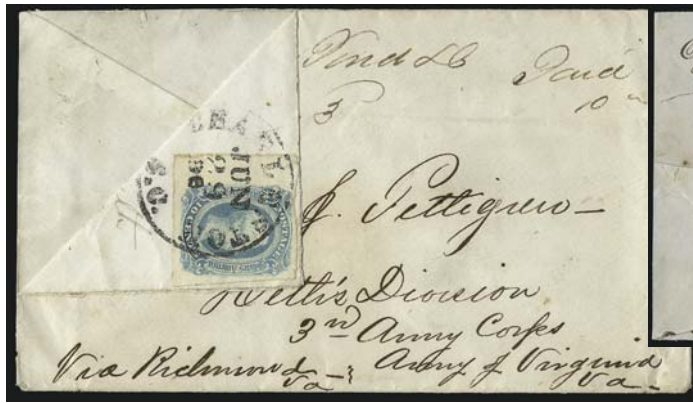 Paid
10
CHARLESTON S.C.
JUN
29
J. Pettigrew
Hettis Division
3rd Army Corps
Via Richmond Va Army of Virginia
Va